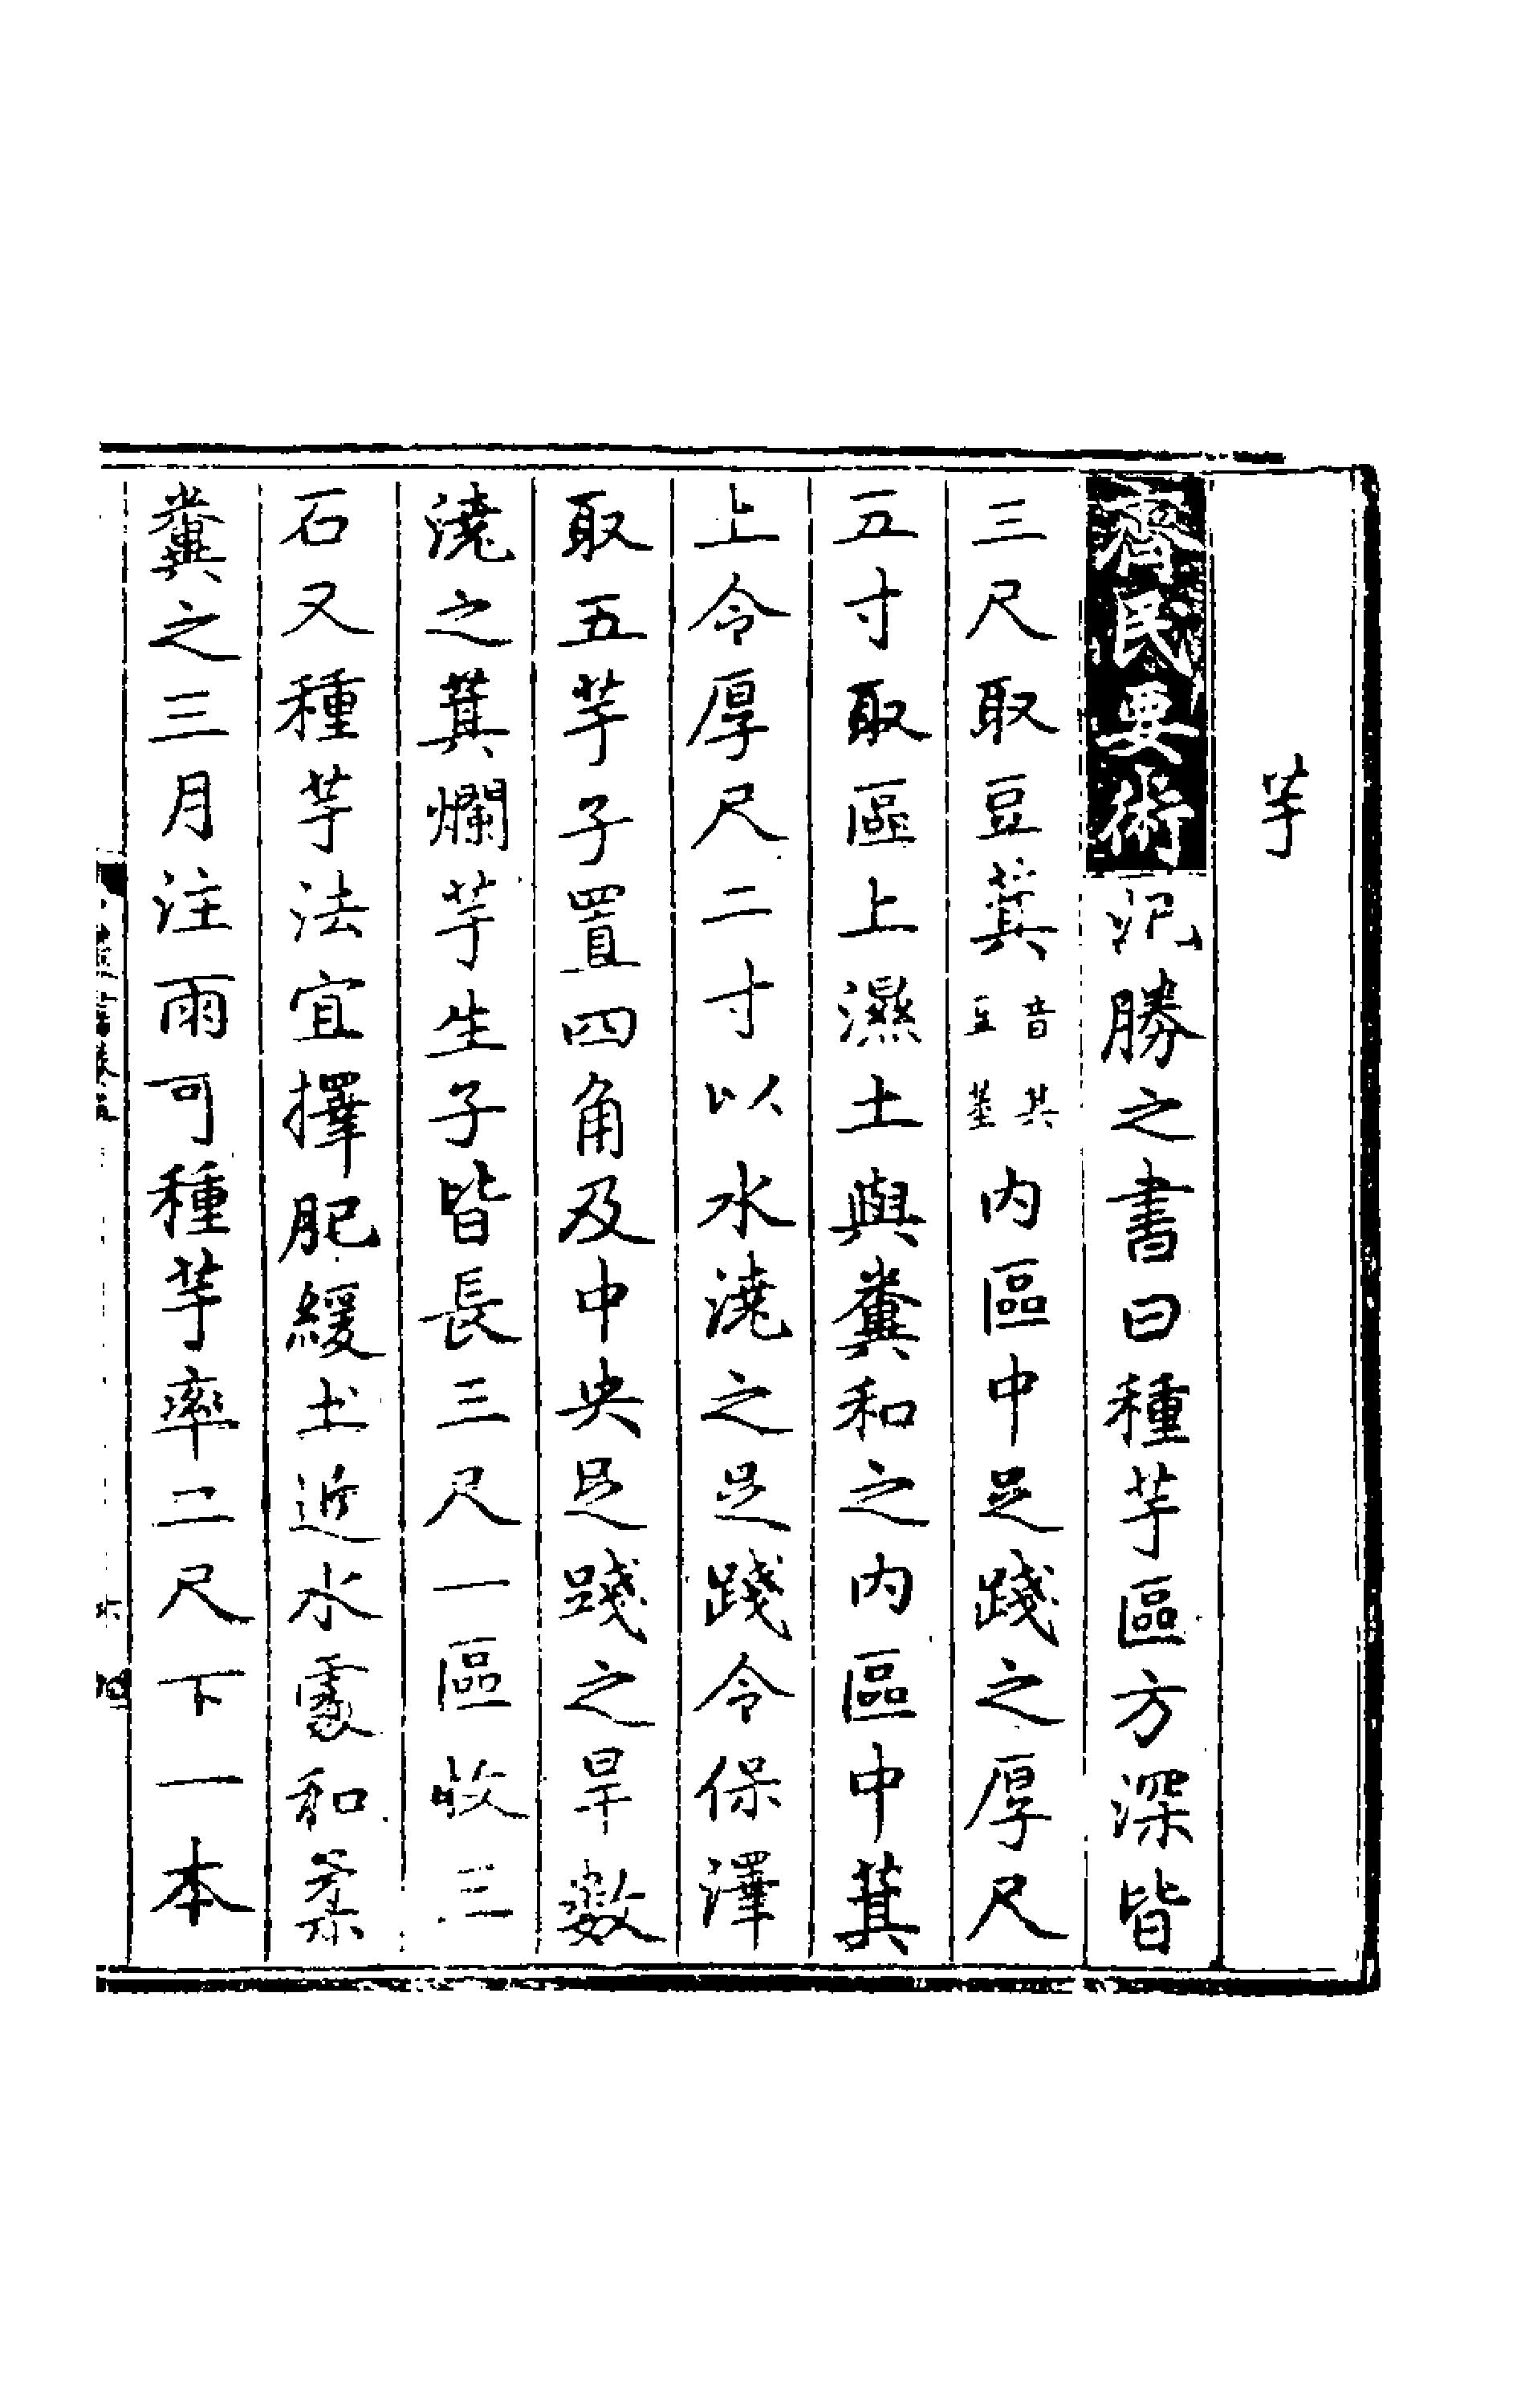 芋
齊民要術氾勝之書曰種芋區方深皆
三尺取豆萁音其豆莖内區中足踐之厚尺
五寸取區上濕土與糞和之内區中萁
上令厚尺二寸以水澆之足踐令保澤
取五芋子置四角及中央足踐之旱數
澆之萁爛芋生子皆長三尺一區收三
石又種芋法宜擇肥緩土近水處和柔
糞之三月注雨可種芋率二尺下一本